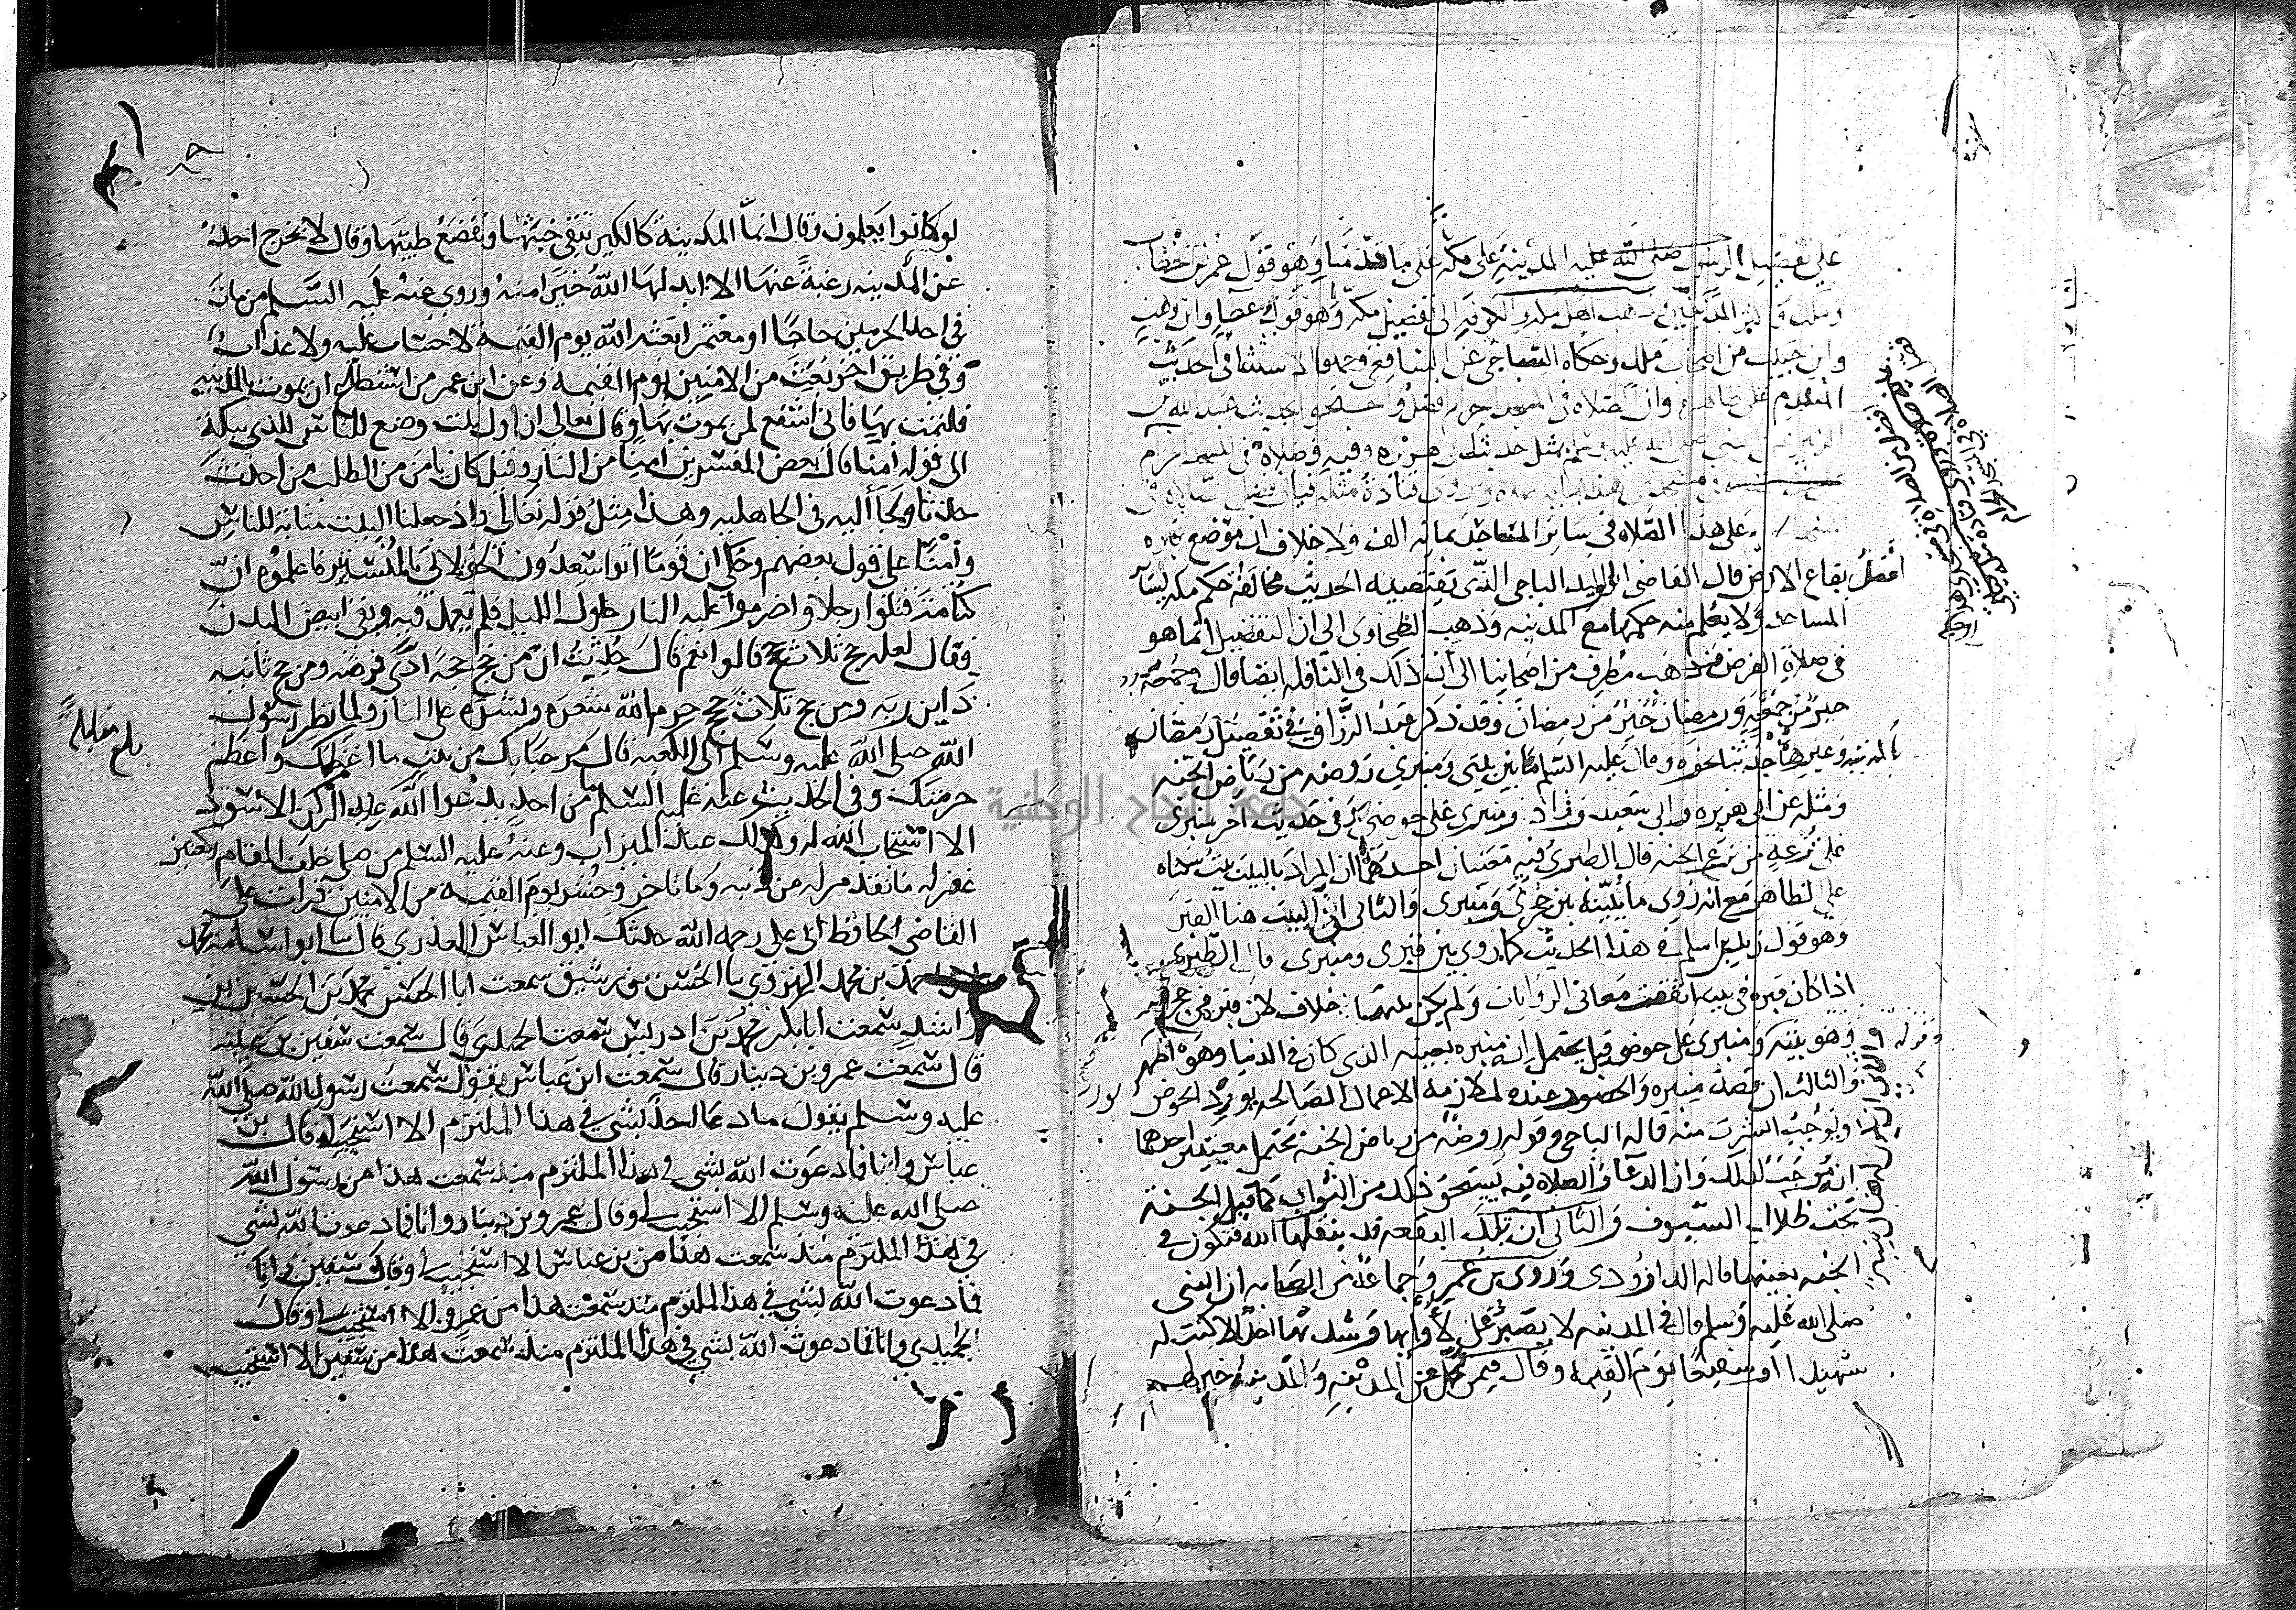 على تفضيل الرسول صلى الله عليه المدينة على مكة على ما قدمنا وهو قول عمر بن الخطاب
وملك واكثر المدنيين وذهب اهل مكة والكوفة الى تفضيل مكة وهو قول عطا وابن وهب
وابن حبيب من اصحاب ملك وحكاه الساجي عن الشافعي وحملوا الاستثنا في الحديث
المتقدم على ظاهره وان الصلاة في المسجد الحرام افضل واحتجوا بحديث عبد الله بن
الزبير عن النبي صلى الله عليه وسلم بمثل حديث ابي هريرة وفيه وصلاة في المسجد الحرام
افضل من الصلاة في مسجدي هذا بماية صلاة وروى قتادة مثله فياتي فضل الصلاة في
المسجد الحرام على هذا الصلاة في سائر المساجد بماية الف ولا خلاف ان موضع قبره
افضل بقاع الارض قال القاضي ابو الوليد الباجي الذي يقتضيه الحديث مخالفة حكم مكة لسائر
المساجد ولا يعلم منه حكمها مع المدينة وذهب الطحاوي الى ان التفضيل انما هو
في صلاة الفرض وذهب مطرف من اصحابنا الى ان ذلك في النافلة ايضا قال وجمعة
خير من جمعة ورمضان خير من رمضان وقد ذكر عبد الرزاق في تفضيل رمضان
بالمدينة وغيرها حديثا نحوه وقال عليه السلم ما بين بيتي ومنبري روضة من رياض الجنة
ومثله عن ابي هريرة وابي سعيد وزاد ومنبري على حوضي وفي حديث آخر منبري
على ترعة من ترع الجنة قال الطبري فيه معنيان احدهما ان المراد بالبيت بيت سكناه
على الظاهر مع انه روى ما يبينه بين حجرتي ومنبري والثاني ان البيت هنا القبر
وهو قول زيد بن اسلم في هذا الحديث كما روي بين قبري ومنبري قال الطبري
اذا كان قبره في بيته اتفقت معاني الروايات ولم يكن بينهما خلاف لان قبره في حجرته
وهو بيته وقوله ومنبري على حوضي قيل يحتمل انه منبره بعينه الذي كان في الدنيا وهو اظهر
والثاني ان يكون له هناك منبر
والثالث ان قصد منبره والحضور عنده لملازمة الاعمال الصالحة يورد الحوض
ويوجب الشرب منه قاله الباجي وقوله روضة من رياض الجنة يحتمل معنيين احدهما
انه موجب لذلك وان الدعا والصلاة فيه يستحق ذلك من الثواب كما قيل الجنة
تحت ظلال السيوف والثاني ان تلك البقعة قد ينقلها الله فتكون في
الجنة بعينها قاله الداوودي وروى بن عمر وجماعة من الصحابة ان النبي
صلى الله عليه وسلم قال في المدينة لا يصبر على لأوايها وشدتها احد الا كنت له
شهيدا او شفيعا يوم القيمة وقال فيمن تحمل عن المدينة والمدينة خير لهم
لو كانوا يعلمون وقال انما المدينة كالكير تنفي خبثها وتنصع طيبها وقال لا يخرج احد
عن المدينة رغبة عنها الا ابدلها الله خيرا منه وروي عنه عليه السلم من مات
في احد الحرمين حاجا او معتمرا بعثه الله يوم القيمة لا حساب عليه ولا عذاب
وفي طريق اخر بعث من الامنين يوم القيمة وعن ابن عمر من استطاع ان يموت بالمدينة
فليمت بها فاني اشفع لمن يموت بها وقال تعالى ان اول بيت وضع للناس للذي ببكة
الى قوله امنا قال بعض المفسرين امنا من النار وقيل كان يامن من الطلب من احدث
حدثا ولجأ اليه في الجاهلية وهذا مثل قوله تعالى واذ جعلنا البيت مثابة للناس
وامنا على قول بعضهم وحكي ان قوما اتوا سعدون الخولاني بالمنستير فاعلموه ان
كتامة قتلوا رجلا واضرموا عليه النار طول الليل فلم يعمل فيه وبقي ابيض البدن
فقال لعله حج ثلاث حجج قالوا نعم قال حدثت ان من حج حجة ادى فرضه ومن حج ثانية
داين ربه ومن حج ثلاث حجج حرم الله شعره وبشره على النار ولما نظر رسول
الله صلى الله عليه وسلم الى الكعبة قال مرحبا بك من بيت ما اعظمك واعظم
حرمتك وفي الحديث عنه عليه السلم ما من احد يدعوا الله عند الركن الاسود
الا استجاب الله له وكذلك عند الميزاب وعنه عليه السلم من صلى خلف المقام ركعتين
غفر له ما تقدم من ذنبه وما تاخر وحشر يوم القيمة من الامنين قرات على
القاضي الحافظ ابي علي رحمه الله حدثك ابو العباس العذري قال نا ابو اسامة محمد
بن احمد بن محمد الهروي نا الحسن بن رشيق سمعت ابا الحسن محمد بن الحسن بن
راشد سمعت ابا بكر محمد بن ادريس سمعت الحميدي قال سمعت سفين بن عيينة
قال سمعت عمرو بن دينار قال سمعت ابن عباس يقول سمعت رسول الله صلى الله
عليه وسلم يقول ما دعا احد بشي في هذا الملتزم الا استجيب له قال بن
عباس وانا فما دعوت الله بشي في هذا الملتزم منذ سمعت هذا من رسول الله
صلى الله عليه وسلم الا استجيب لي وقال عمرو بن دينار وانا فما دعوت الله بشي
في هذا الملتزم منذ سمعت هذا من بن عباس الا استجيب لي وقال سفين وانا
فما دعوت الله بشي في هذا الملتزم منذ سمعت هذا من عمرو الا استجيب لي وقال
الحميدي وانا فما دعوت الله بشي في هذا الملتزم منذ سمعت هذا من سفين الا استجيب
بلغ مقابلة
جامعة النجاح الوطنية